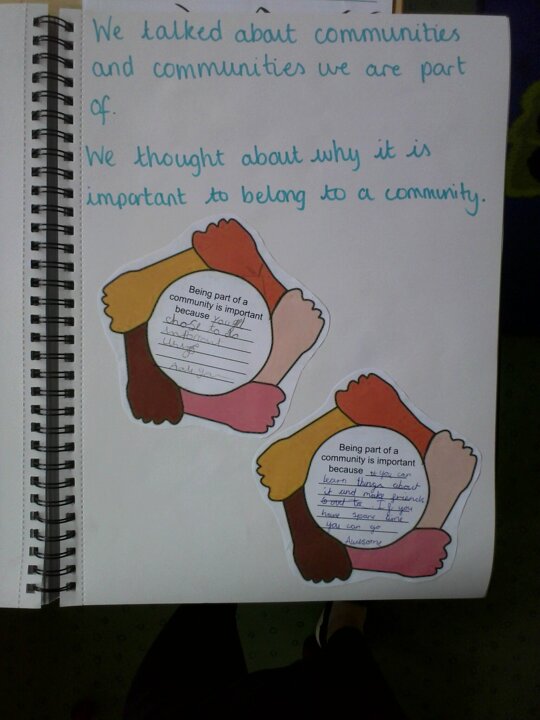 We talked about communities
and communities we are part
of.
We thought about why it is
important to belong to a community.
Being part of a
community is important
because
chose to do
Being part of a
community is important
because you can
learn things about
it and make friends
to. If you
have spare time
you can go
Awesome